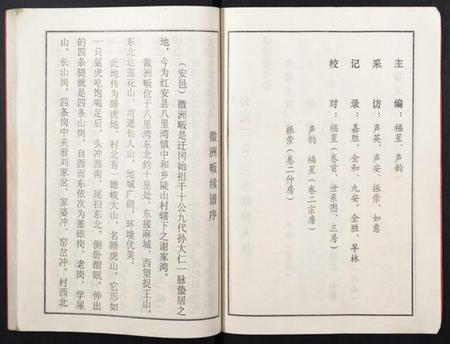 主　编：福星、声钧
采　访：声英、声安、振崇、如意
记　录：嘉胜、金和、九安、全胜、早林
校　对：福星（卷首、世系图、三房）
声钧　福星（卷二宗房）
振崇（卷二仲房）
徽洲畈续谱序
（安邑）徽洲畈是迁冈始祖千十公九代孙大仁一脉蛰居之
地，今为红安县八里湾镇中和乡陡山村辖下之谢家湾。
徽洲畈位于八里湾东北约十里处，东接麻城，西望捉王山，
东北达莲花山，南通仙人山，地域广阔，环境优美。
此地传为睡虎地，村北有一雄峻大山，名睡虎山。它形如
一只猛虎吃饱喝足后，头冲西南，尾扫东北，侧卧酣眠。伸出
的四条腿就是四条山岗，自西而东依次为董碓岗、老岗、学屋
山、长山岗。四条岗中夹着刘家岔、家婆冲、窑岔冲。村西北